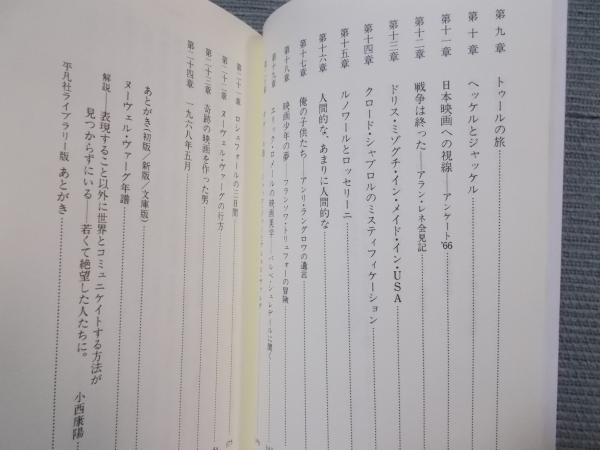 第九章 トゥールの旅
第十章 ヘッケルとジャッケル
第十一章 日本映画への視線——アンケート'66
第十二章 戦争は終った——アラン・レネ会見記
第十三章 ドリス・ミゾグチ・イン・メイド・イン・USA
第十四章 クロード・シャブロルのミスティフィケーション
第十五章 ルノワールとロッセリーニ
第十六章 人間的な、あまりに人間的な
第十七章 俺の子供たち——アンリ・ラングロワの遺言
第十八章 映画少年の夢——フランソワ・トリュフォーの冒険
第十九章 エリック・ロメールの映画美学——バルベ・シュレデールに聞く
第二十一章 ロシュフォールの三日間
第二十二章 ヌーヴェル・ヴァーグの行方
第二十三章 奇跡の映画を作った男
第二十四章 一九六八年五月
あとがき(初版/新版/文庫版)
ヌーヴェル・ヴァーグ年譜
解説——表現すること以外に世界とコミュニケイトする方法が
見つからずにいる——若くて絶望した人たちに。 小西康陽
平凡社ライブラリー版 あとがき